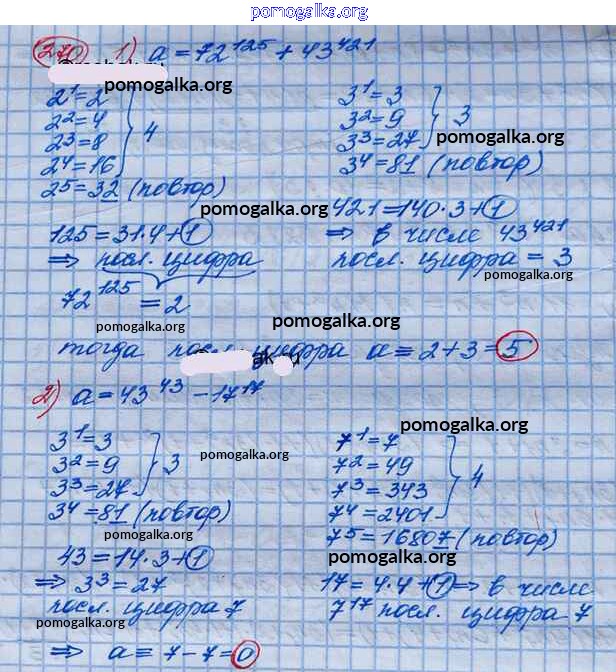 pomogalka.org
270 1) a = 72^125 + 43^421
pomogalka.org
2^1 = 2
2^2 = 4
2^3 = 8
2^4 = 16
} 4
2^5 = 32 (повтор)
3^1 = 3
3^2 = 9
3^3 = 27
} 3
pomogalka.org
3^4 = 81 (повтор)
pomogalka.org
125 = 31·4+1
⇒ посл. цифра
72^125 = 2
pomogalka.org
421 = 140·3+1
⇒ в числе 43^421
посл. цифра = 3
pomogalka.org
pomogalka.org
тогда посл. цифра a = 2+3 = 5
2) a = 43^43 − 17^17
pomogalka.org
3^1 = 3
3^2 = 9
3^3 = 27
} 3
pomogalka.org
3^4 = 81 (повтор)
pomogalka.org
43 = 14·3+1
⇒ 3^3 = 27
посл. цифра 7
pomogalka.org
7^1 = 7
7^2 = 49
7^3 = 343
7^4 = 2401
} 4
7^5 = 16807 (повтор)
pomogalka.org
17 = 4·4+1 ⇒ в числе
7^17 посл. цифра 7
⇒ a = 7−7 = 0